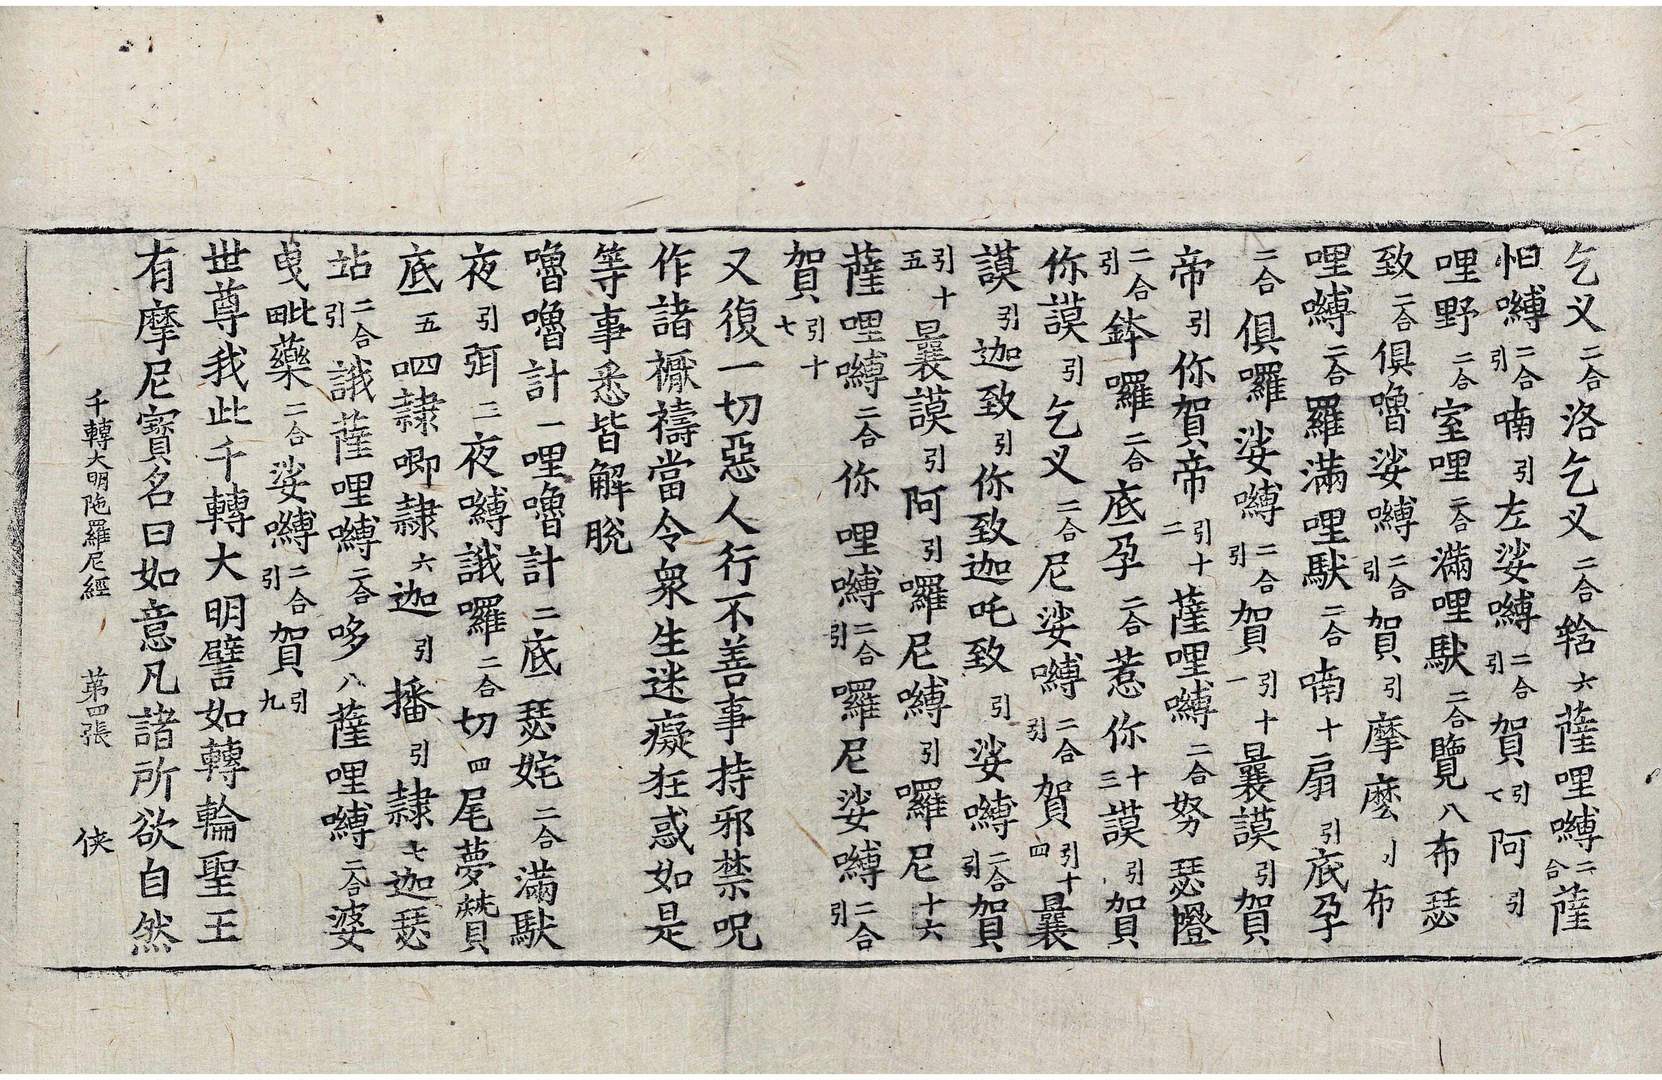 乞义二合洛乞义二合𤚥六薩哩嚩二合薩
怛嚩二合引喃引左娑嚩二合引賀引七阿引
哩野二合室哩二合滿哩馱二合覽八布瑟
致二合俱嚕娑嚩二合引賀引摩麼引布
哩嚩二合羅滿哩馱二合喃十扇引底孕
二合俱囉娑嚩二合引賀引十一曩謨引賀
帝引你賀帝引十二薩哩嚩二合努瑟鐙
二合引鉢囉二合底孕二合惹你十三謨引賀
你謨引乞义二合尼娑嚩二合引賀引十四曩
謨引迦致引你致迦吒致引娑嚩二合引賀
引十五曩謨引阿引囉尼嚩引囉尼十六
薩哩嚩二合你哩嚩二合引囉尼娑嚩二合引
賀引十七
又復一切惡人行不善事持邪禁呪
作諸禳禱當令衆生迷癡狂惑如是
等事悉皆解脫
嚕嚕計一哩嚕計二底瑟姹二合滿馱
夜引弭三夜嚩誐囉二合切四尾夢
底五呬隷唧隷六迦引播引隷七迦瑟
站二合引誐薩哩嚩二合哆八薩哩嚩二合婆
曵毗藥二合娑嚩二合引賀引九
世尊我此千轉大明譬如轉輪聖王
有摩尼寶名曰如意凡諸所欲自然
千轉大明陁羅尼經 第四張 俠